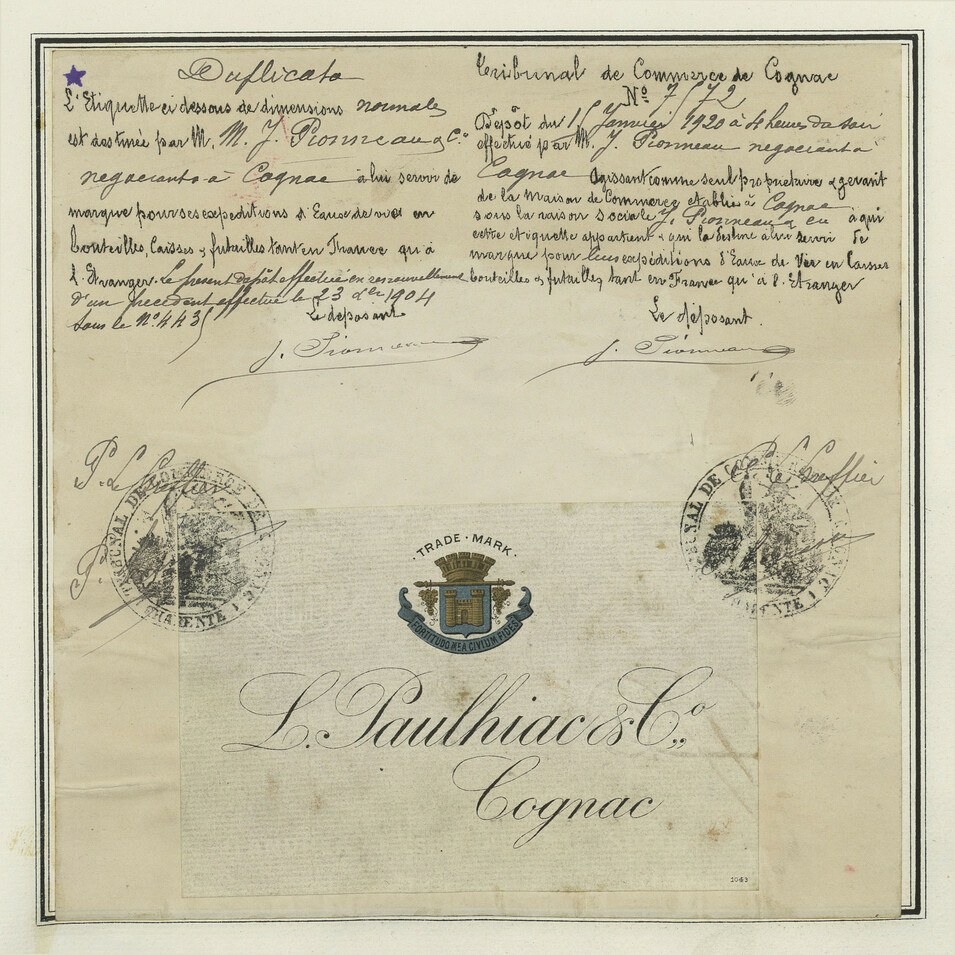 Duplicata
L'Etiquette ci dessous de dimensions normales
est destinée par M. M. J. Pionneau & Co.
negociants à Cognac à lui servir de
marque pour ses expeditions d'Eaux de vie en
bouteilles, Caisses & futailles tant en France qu'à
l'Etranger. Le present dépôt effectué en renouvellement
d'un precedent effectué le 23 dbre 1904
sous le No. 4435
Le déposant
J. Pionneau
Tribunal de Commerce de Cognac
No 7572
Dépôt du 15 Janvier 1920 à 4 heures du soir
effectué par M. J. Pionneau negociant à
Cognac Agissant comme seul propriétaire & gerant
de la Maison de Commerce etablie à Cognac
sous la raison sociale J. Pionneau & à qui
cette etiquette appartient & qui la destine à lui servir de
marque pour leurs expéditions d'Eaux de Vie en Caisses
bouteilles & futailles, tant en France qu'à l'Etranger
Le déposant.
J. Pionneau
P. Le Greffier
TRIBUNAL DE COMMERCE DE COGNAC
CHARENTE
Le Greffier
TRIBUNAL DE COMMERCE DE COGNAC
CHARENTE
TRADE · MARK ·
FORTITUDO MEA CIVIUM FIDES
L. Paulhiac & Co.,
Cognac
1043